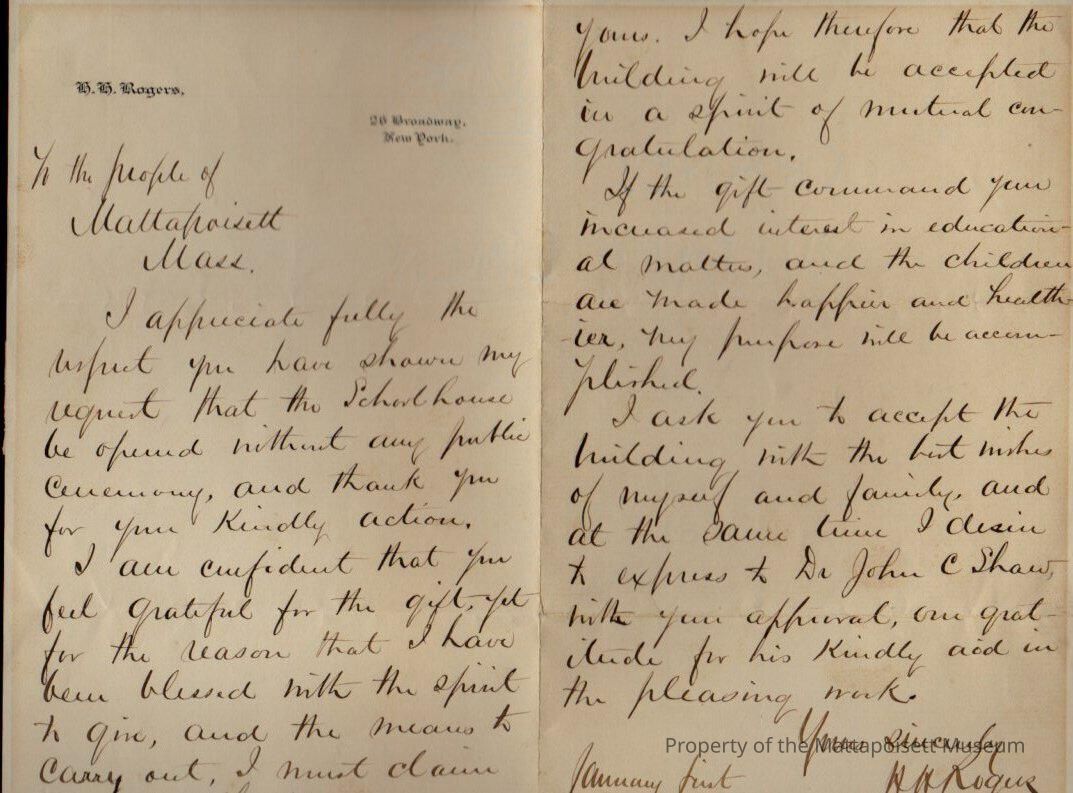 H. H. Rogers,
26 Broadway,
New York.
To the people of
Mattapoisett
Mass.
I appreciate fully the
respect you have shown my
request that the Schoolhouse
be opened without any public
ceremony, and thank you
for your kindly action.
I am confident that you
feel grateful for the gift, yet
for the reason that I have
been blessed with the spirit
to give, and the means to
carry out, I must claim
yours. I hope therefore that the
building will be accepted
in a spirit of mutual con-
gratulation.
If the gift command your
increased interest in education-
al matters, and the children
are made happier and health-
ier, my purpose will be accom-
plished.
I ask you to accept the
building with the best wishes
of myself and family, and
at the same time I desire
to express to Dr John C Shaw,
with your approval, our grat-
itude for his kindly aid in
the pleasing work.
Yours sincerely
Property of the Mattapoisett Museum
January first
H H Rogers